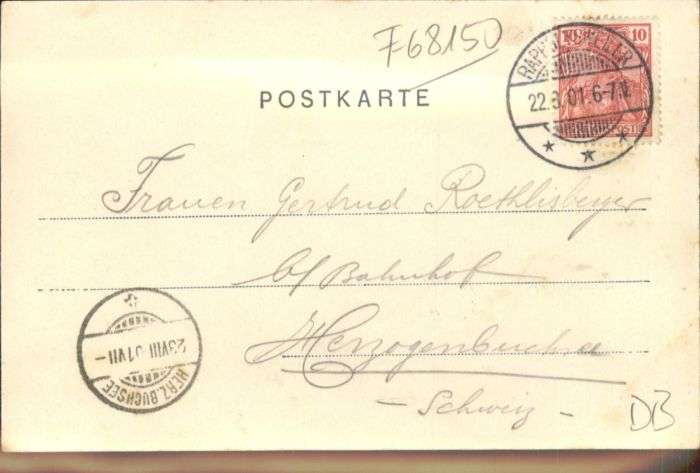 F68150
10
RAPPOLTSWEILER
22.8.01.6-7.V.
POSTKARTE
Frauen Gertrud Roethlisberger
b/Bahnhof
Herzogenbuchsee
- Schweiz -
23 VIII 01 VII -
HERZ.BUCHSEE
DB